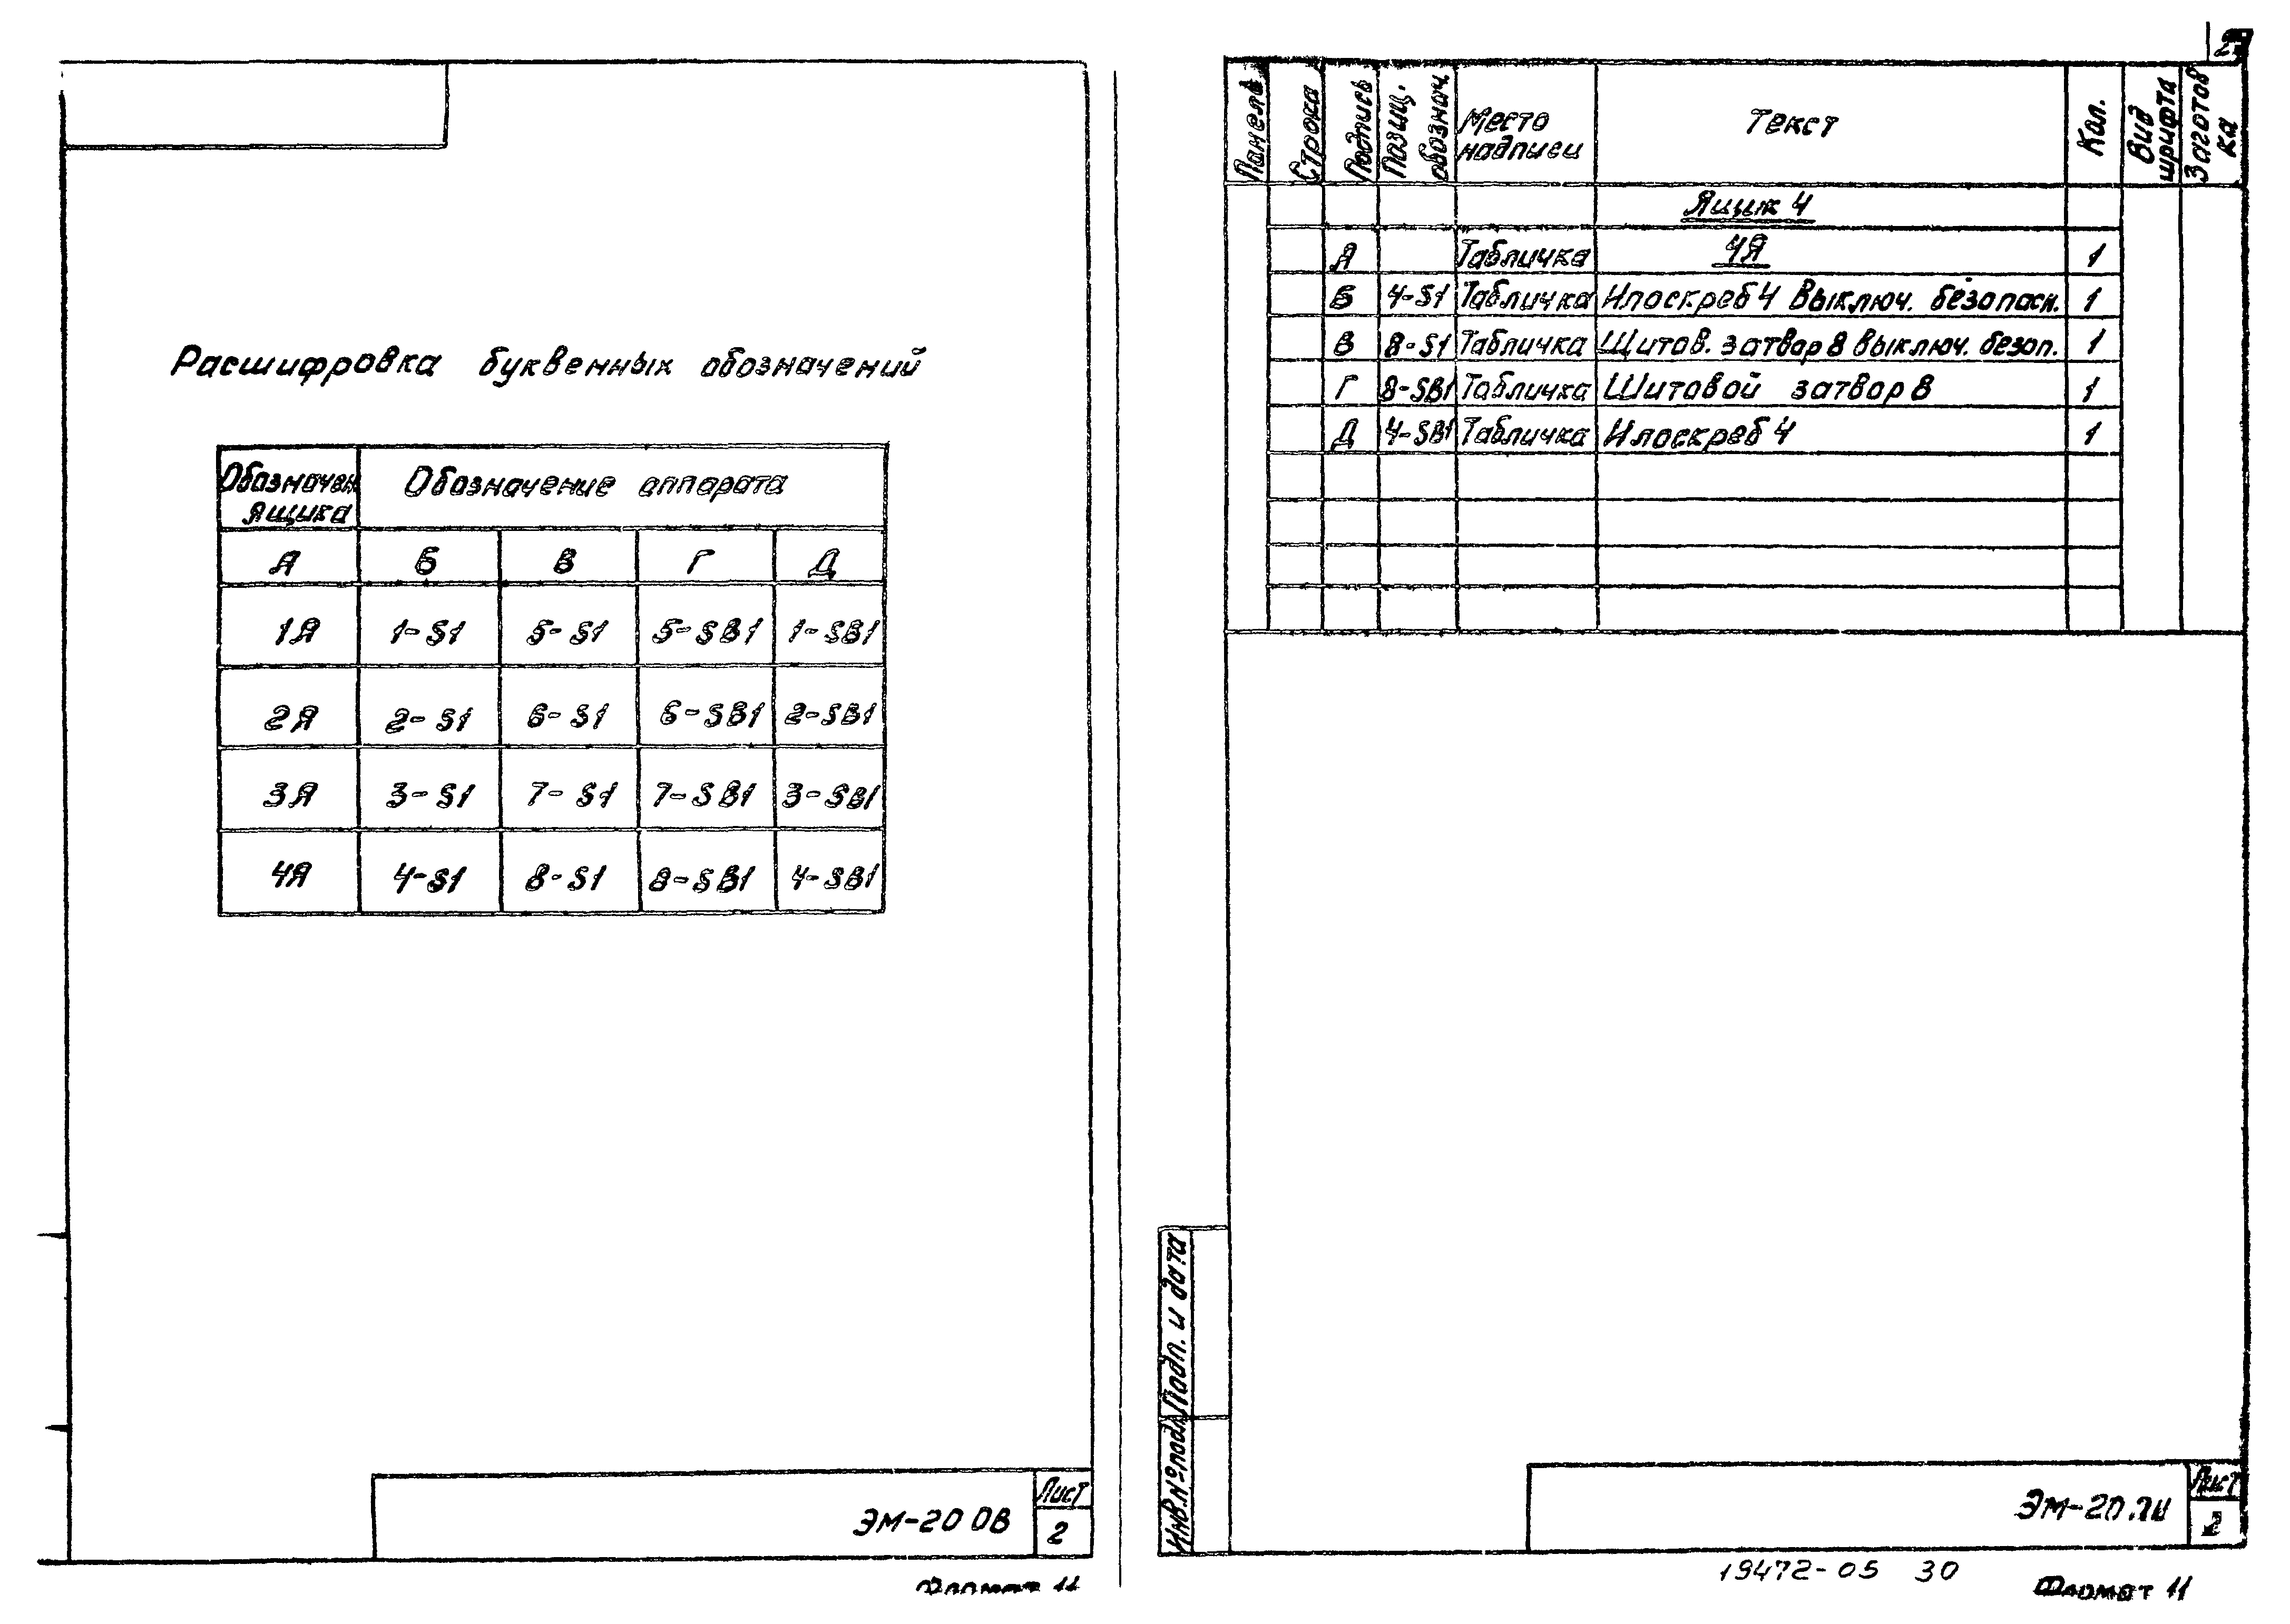 Расшифровка буквенных обозначений
Обозначен. Обозначение аппарата
Ящика
А Б В Г Д
1Я 1-S1 5-S1 5-SB1 1-SB1
2Я 2-S1 6-S1 6-SB1 2-SB1
3Я 3-S1 7-S1 7-SB1 3-SB1
4Я 4-S1 8-S1 8-SB1 4-SB1
ЭМ-20 ОВ
Лист
2
Формат 11
Панель Строка Подпись Позиц. обознач. Место надписи Текст Кол. Вид шрифта Заготовка
Ящик 4
А Табличка 4Я 1
Б 4-S1 Табличка Илоскреб 4 Выключ. безопасн. 1
В 8-S1 Табличка Щитов. затвор 8 выключ. безоп. 1
Г 8-SB1 Табличка Щитовой затвор 8 1
Д 4-SB1 Табличка Илоскреб 4 1
Подп. и дата
Инв.№подл.
ЭМ-20
Лист
2
19472-05 30
Формат 11